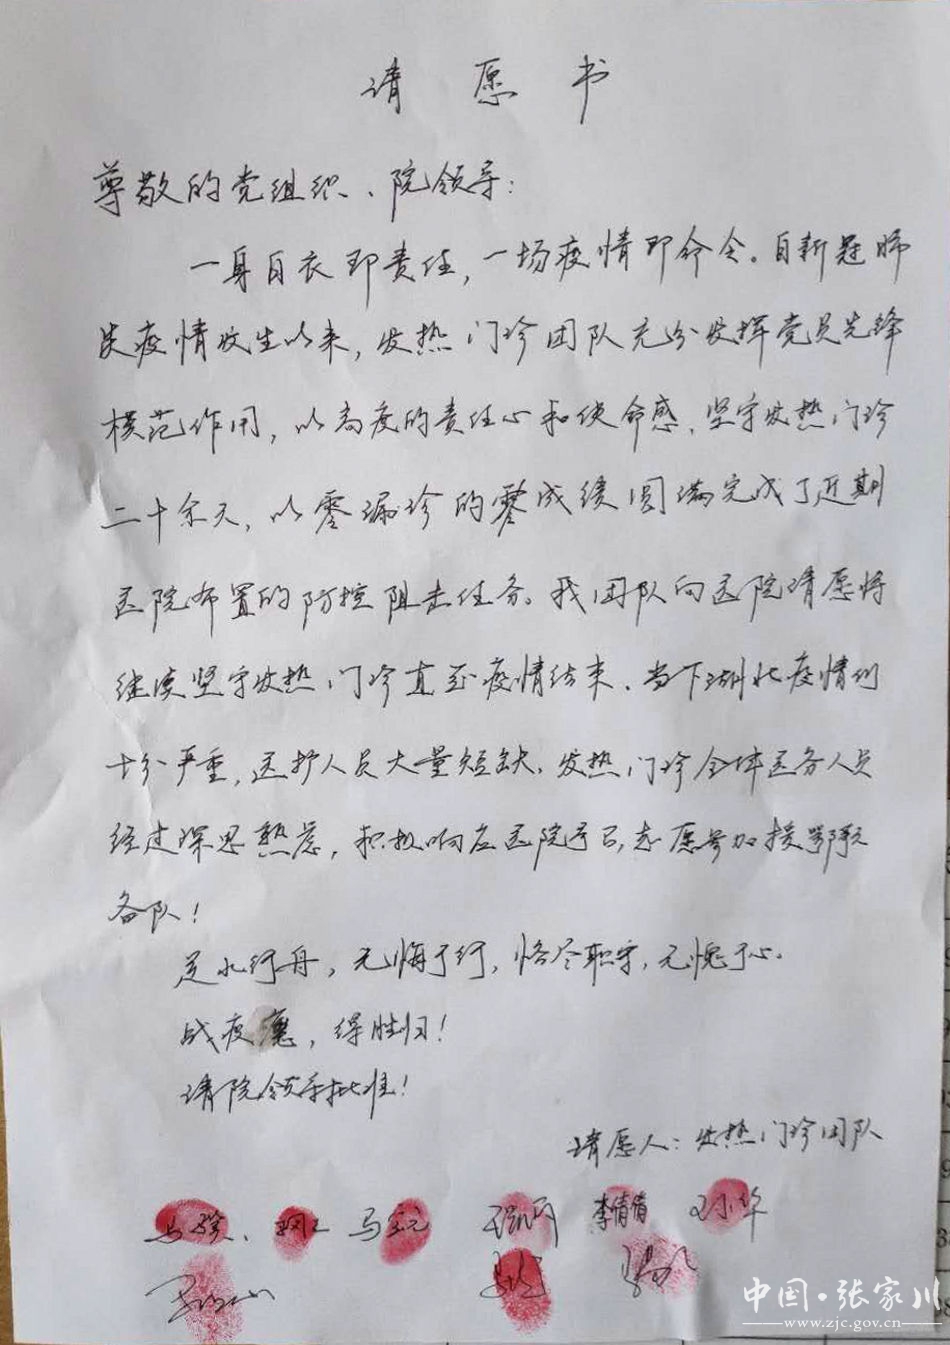 请愿书
尊敬的党组织、院领导：
一身白衣即责任，一场疫情即命令。自新冠肺
炎疫情发生以来，发热门诊团队充分发挥党员先锋
模范作用，以高度的责任心和使命感、坚守发热门诊
二十余天，以零漏诊的零成绩圆满完成了近期
医院布置的防控阻击任务。我团队向医院请愿将
继续坚守发热门诊直至疫情结束、当下湖北疫情仍
十分严重，医护人员大量短缺、发热门诊全体医务人员
经过深思熟虑，积极响应医院号召，志愿参加援鄂预
备队！
逆水行舟，无悔于行，恪尽职守，无愧于心。
战疫，得胜归！
请院领导批准！
请愿人：发热门诊团队
李倩倩
中国·张家川
www.zjc.gov.cn